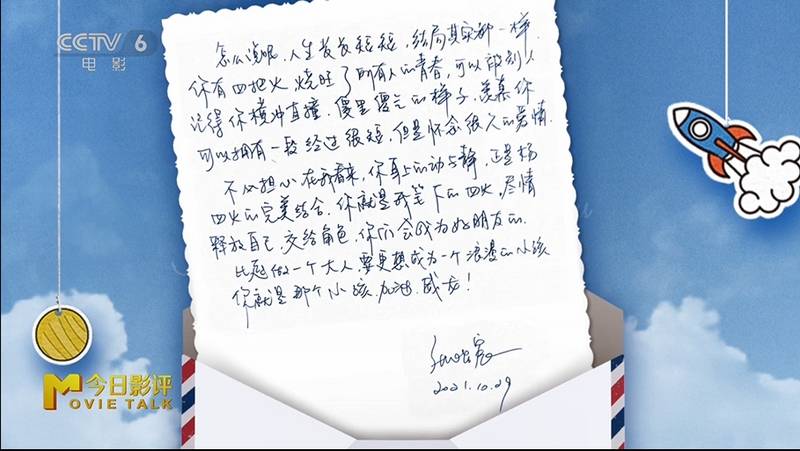 CCTV 6
电影
怎么说呢,人生长长短短,结局其实都一样.
你有四把火 烧旺了所有人的青春,可以深刻从
记得你横冲直撞.傻里傻气的样子,羡慕你
可以拥有一段经过很短,但是怀念很久的爱情.
不必担心 在我看来,你身上的动与静,正是杨
四火的完美结合.你就是我笔下的四火,尽情
释放自己,交给角色,你们会成为好朋友的.
比起做一个大人,要更想成为一个浪漫的小孩
你就是那个小孩.加油.
2021.10.29
M 今日影评
MOVIE TALK